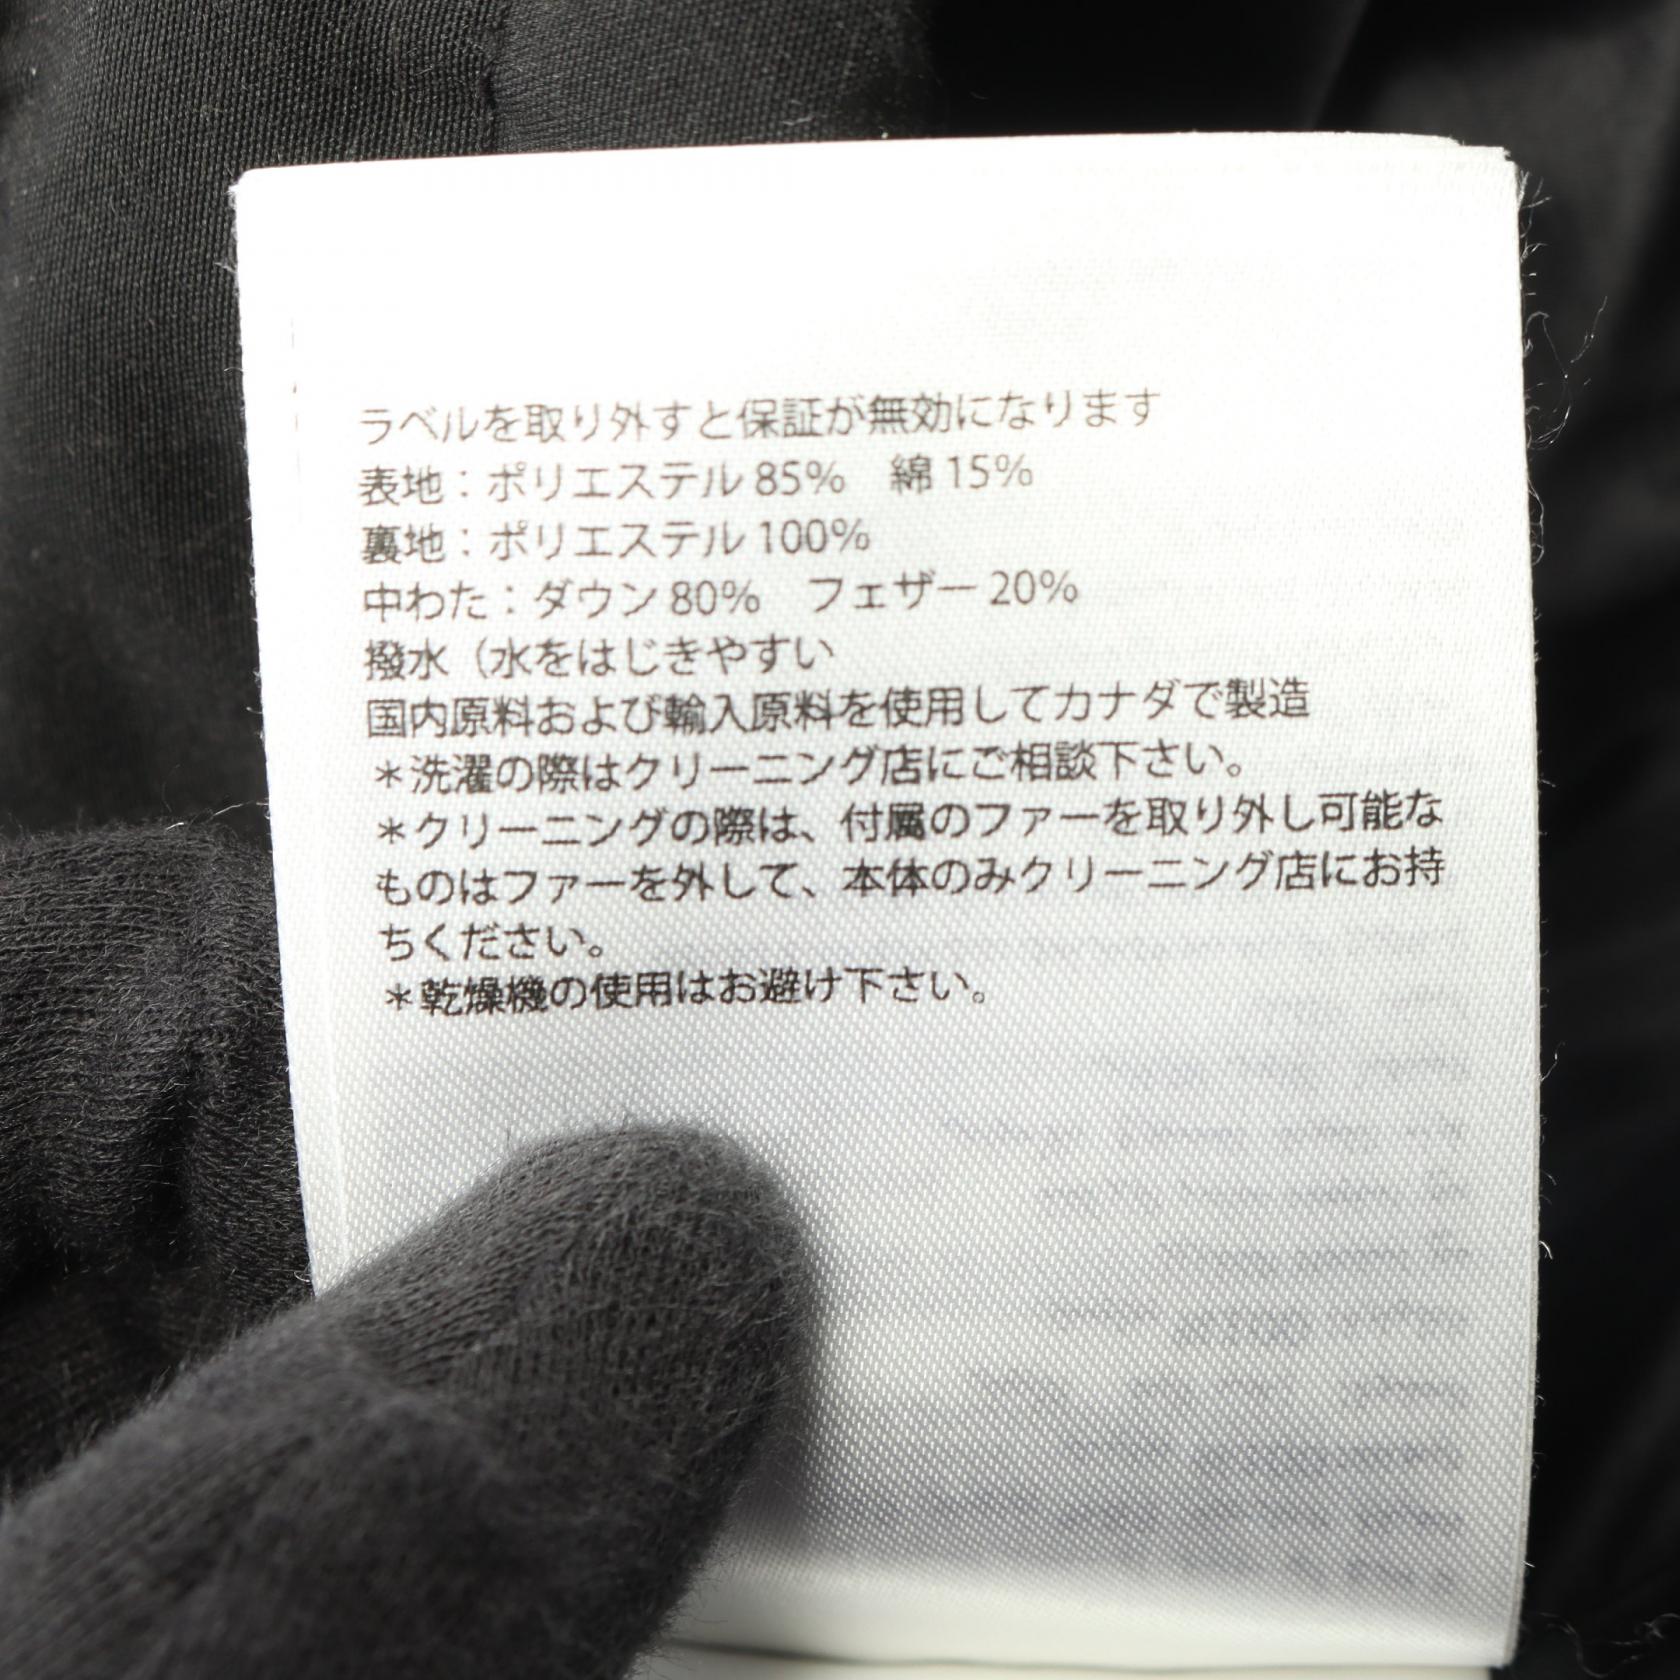 ラベルを取り外すと保証が無効になります
表地：ポリエステル 85%　綿 15%
裏地：ポリエステル 100%
中わた：ダウン 80%　フェザー 20%
撥水（水をはじきやすい
国内原料および輸入原料を使用してカナダで製造
＊洗濯の際はクリーニング店にご相談下さい。
＊クリーニングの際は、付属のファーを取り外し可能な
ものはファーを外して、本体のみクリーニング店にお持
ちください。
＊乾燥機の使用はお避け下さい。